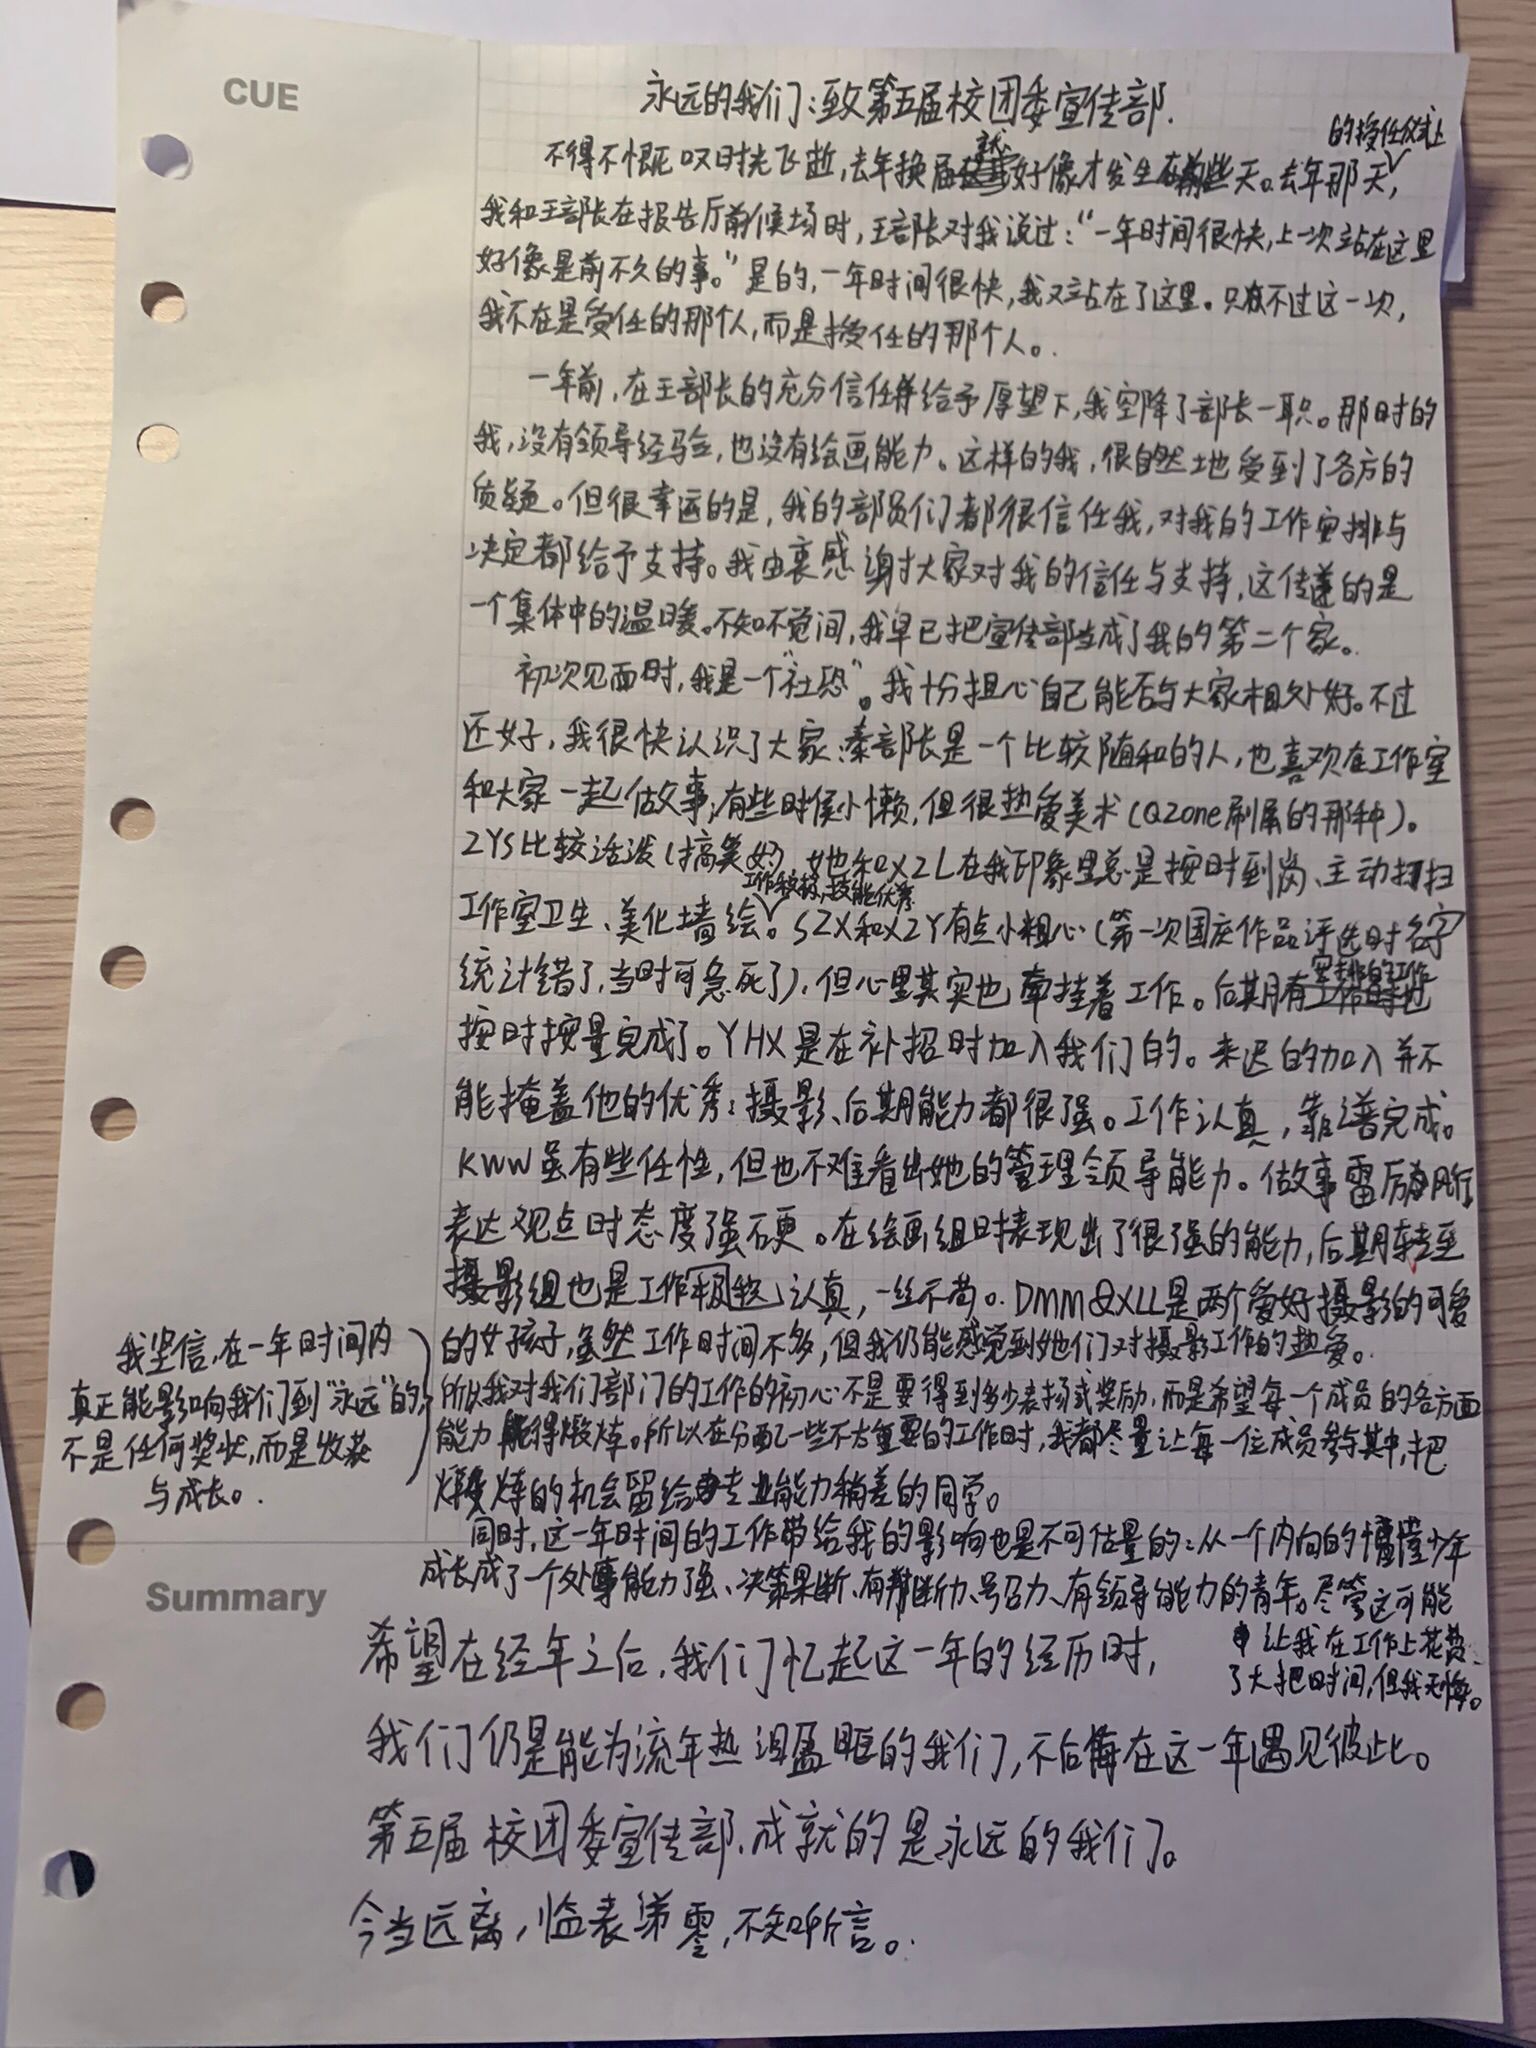 CUE
永远的我们:致第五届校团委宣传部.
的授任仪式上
不得不慨叹时光飞逝,去年换届就好像才发生在前些天。去年那天,
我和王部长在报告厅前候场时,王部长对我说过:“一年时间很快,上一次站在这里
好像是前不久的事。”是的,一年时间很快,我又站在了这里。只不过这一次,
我不在是受任的那个人,而是授任的那个人。
一年前,在王部长的充分信任并给予厚望下,我空降了部长一职。那时的
我,没有领导经验,也没有绘画能力。这样的我,很自然地受到了各方的
质疑。但很幸运的是,我的部员们都很信任我,对我的工作安排与
决定都给予支持。我由衷感谢大家对我的信任与支持,这传递的是
一个集体中的温暖。不知不觉间,我早已把宣传部当成了我的第二个家。
初次见面时,我是一个“社恐”。我十分担心自己能否与大家相处好。不过
还好,我很快认识了大家:秦部长是一个比较随和的人,也喜欢在工作室
和大家一起做事,有些时候小懒,但很热爱美术(QZone刷屏的那种)。
ZYS比较活泼(搞笑女),她和XZL在我印象里总是按时到岗、主动打扫
工作积极,技能优秀
工作室卫生、美化墙绘。SZX和XZY有点小粗心(第一次国庆作品评选时名字
统计错了,当时可急死了),但心里其实也牵挂着工作。后期有安排的工作也
按时按量完成了。YHX是在补招时加入我们的。来迟的加入并不
能掩盖他的优秀:摄影、后期能力都很强。工作认真,靠谱完成。
KWW虽有些任性,但也不难看出她的管理领导能力。做事雷厉风行
表达观点时态度强硬。在绘画组时表现出了很强的能力,后期转至
摄影组也是工作积极认真,一丝不苟。DMM及XLL是两个爱好摄影的可爱
的女孩子,虽然工作时间不多,但我仍能感觉到她们对摄影工作的热爱。
我坚信,在一年时间内
真正能影响我们到“永远”的,
不是任何奖状,而是收获
与成长。
所以我对我们部门的工作的初心不是要得到多少表扬或奖励,而是希望每一个成员的各方面
能力能得煅炼。所以在分配一些不太重要的工作时,我都尽量让每一位成员参与其中,把
煅炼的机会留给专业能力稍差的同学。
同时,这一年时间的工作带给我的影响也是不可估量的:从一个内向的懵懂少年
成长成了一个处事能力强、决策果断、有判断力、号召力、有领导能力的青年。尽管这可能
让我在工作上花费
了大把时间,但我无悔。
Summary
希望在经年之后,我们忆起这一年的经历时,
我们仍是能为流年热泪盈眶的我们,不后悔在这一年遇见彼此。
第五届校团委宣传部,成就的是永远的我们。
今当远离,临表涕零,不知所言。